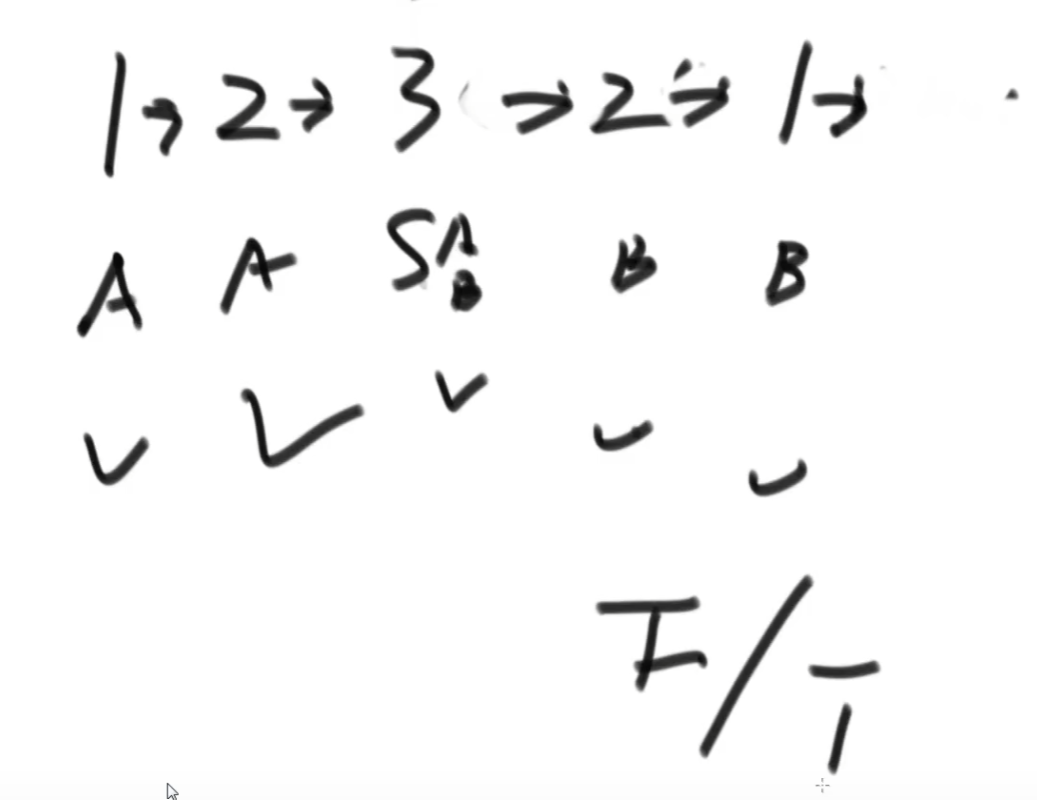 1 → 2 → 3 → 2 → 1 →
A A S A B B B
✓ ✓ ✓ ✓ ✓